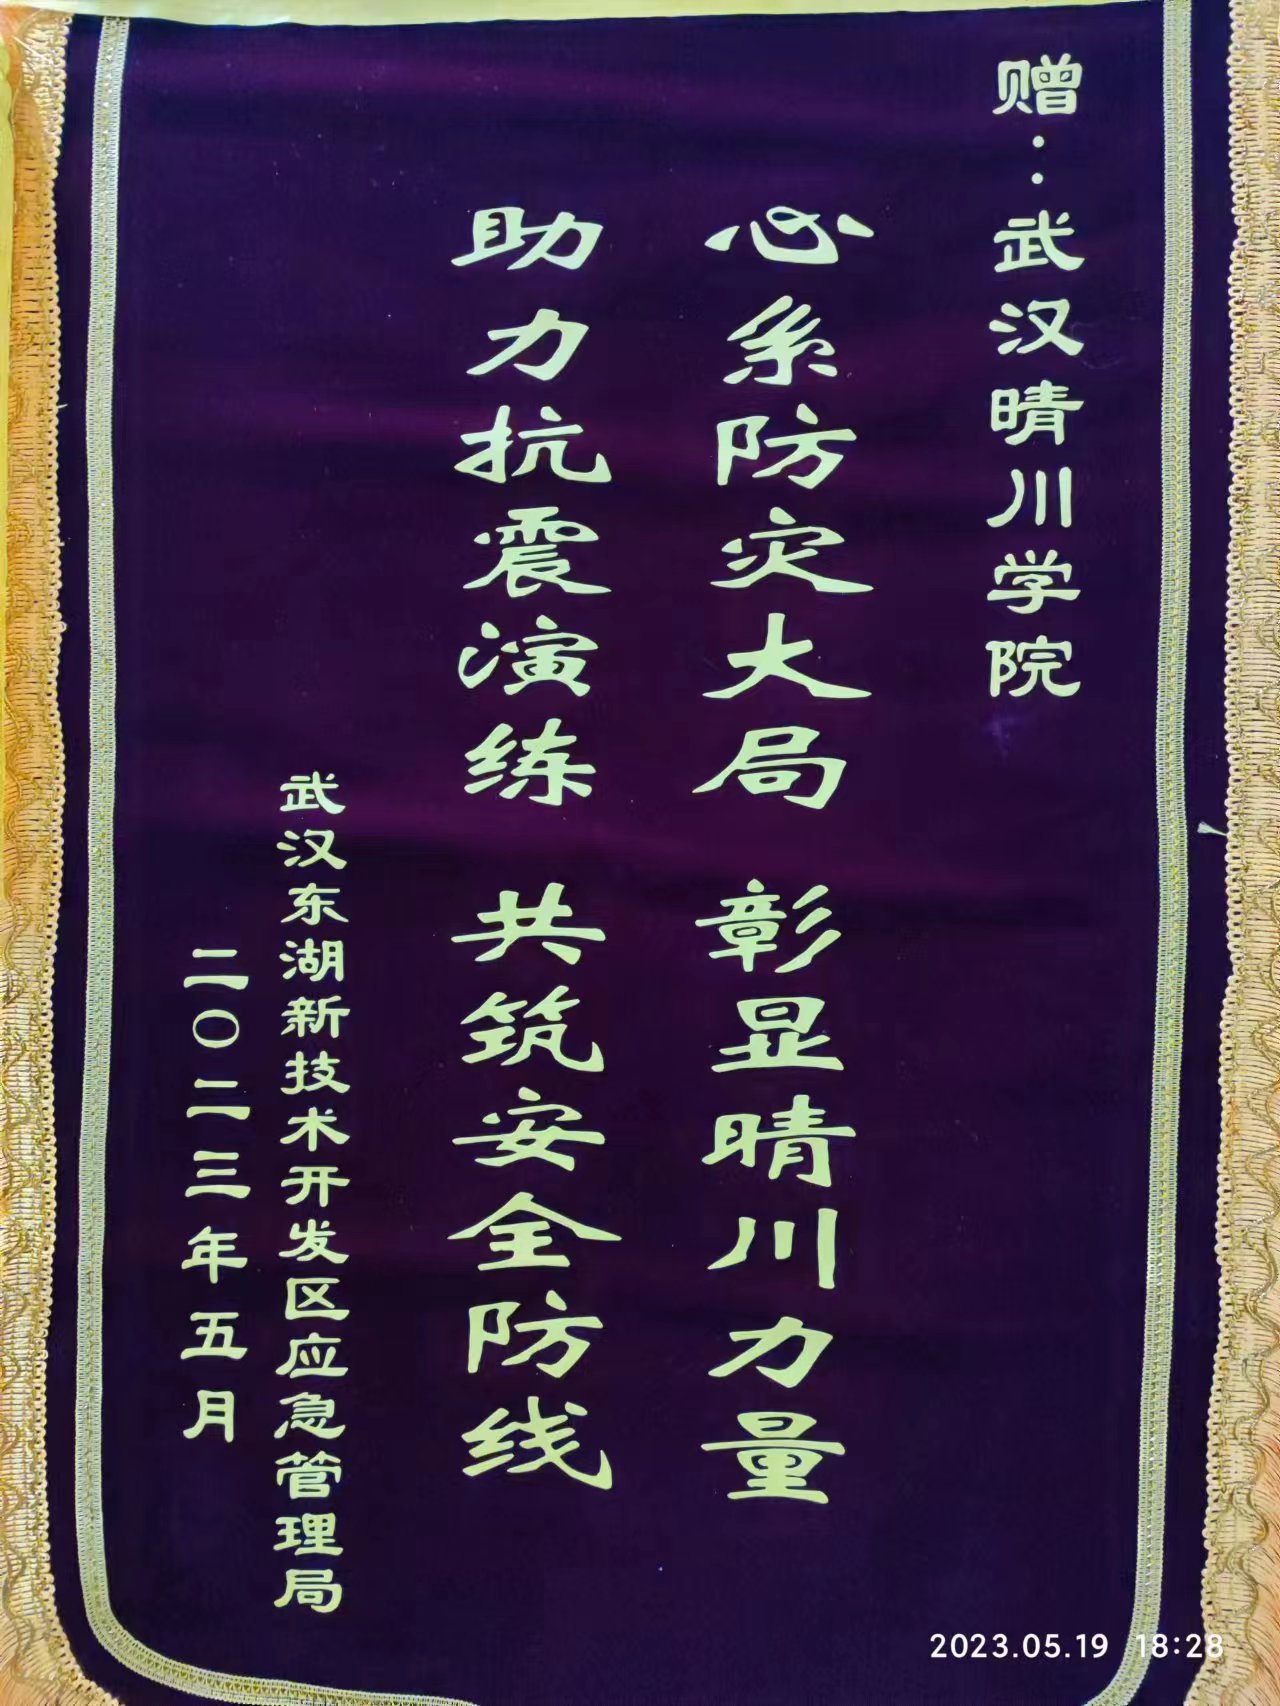 赠：武汉晴川学院
心系防灾大局 彰显晴川力量
助力抗震演练 共筑安全防线
武汉东湖新技术开发区应急管理局
二〇二三年五月
2023.05.19 18:28